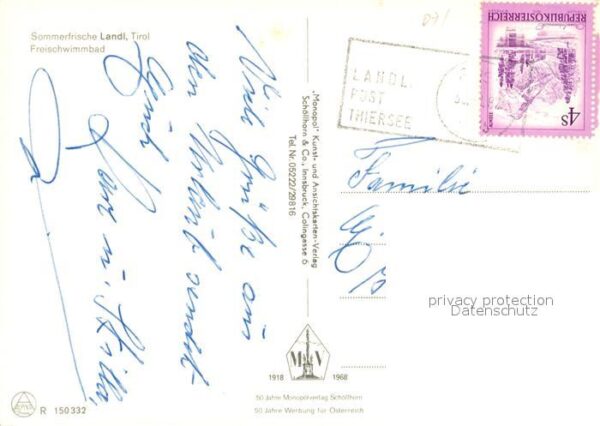 Sommerfrische Landl, Tirol
Freischwimmbad
Viele Grüße aus
dem Urlaub sendet
„Monopol" Kunst- und Ansichtskarten-Verlag
Schöllhorn & Co., Innsbruck, Colingasse 6
Tel. Nr. 05222/29816
LANDL
POST
THIERSEE
REPUBLIK ÖSTERREICH
4S
Familie
privacy protection
Datenschutz
M V
1918 1968
50 Jahre Monopolverlag Schöllhorn
50 Jahre Werbung für Österreich
R 150332